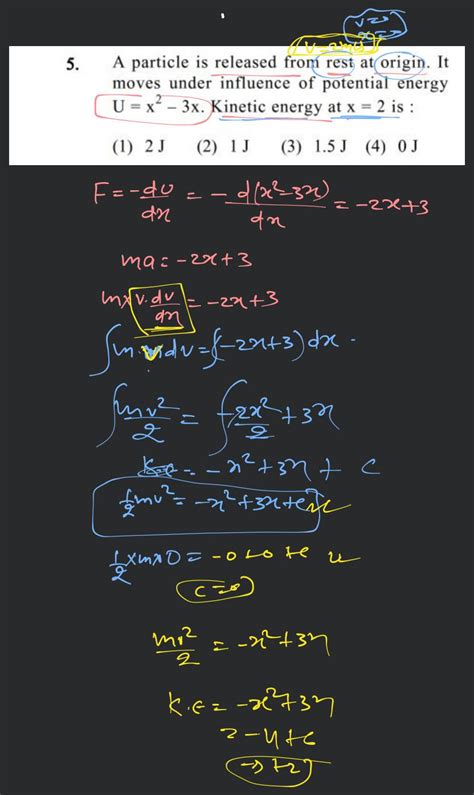 v=0
x=0
5. A particle is released from rest at origin. It
moves under influence of potential energy
U = x² – 3x. Kinetic energy at x = 2 is :
(1) 2 J (2) 1 J (3) 1.5 J (4) 0 J
F = -dU/dx = -d(x²-3x)/dx = -2x+3
ma = -2x+3
mx v.dv/dx = -2x+3
∫m.v dv = ∫(-2x+3) dx
∫mv²/2 = ∫-2x²/2 + 3x
K.E = -x²+3x + C
1/2 mv² = -x²+3x+c
1/2 x m x 0 = -0+0+c
C=0
mv²/2 = -x²+3x
K.E = -x²+3x
= -4+6
→ +2J